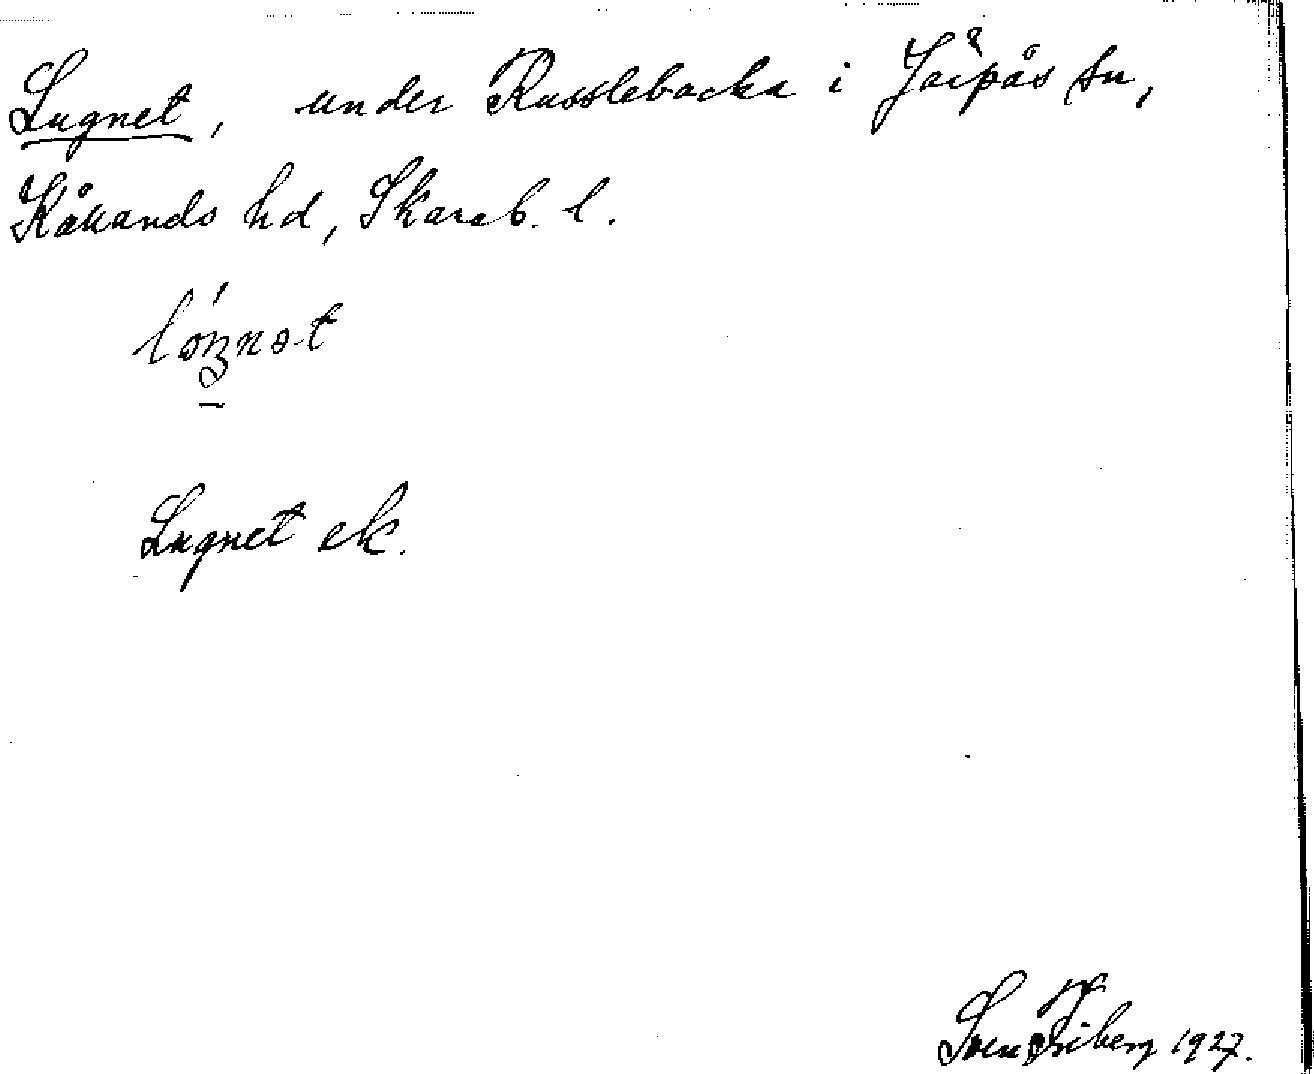 Lugnet, under Russlebacka i Järpås sn,
Kåkands hd, Skarab. l.
Lugnet ek.
Sven Friberg 1927.